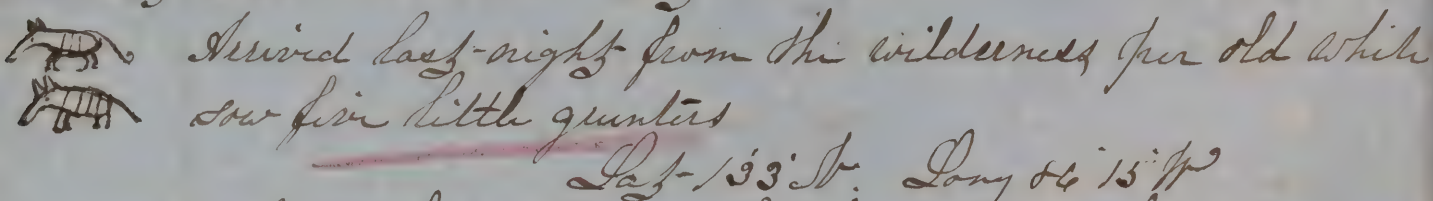 Arrived last night from the wilderness per old white
sow five little grunters
Lat 1°33' N. Long 86°15' W